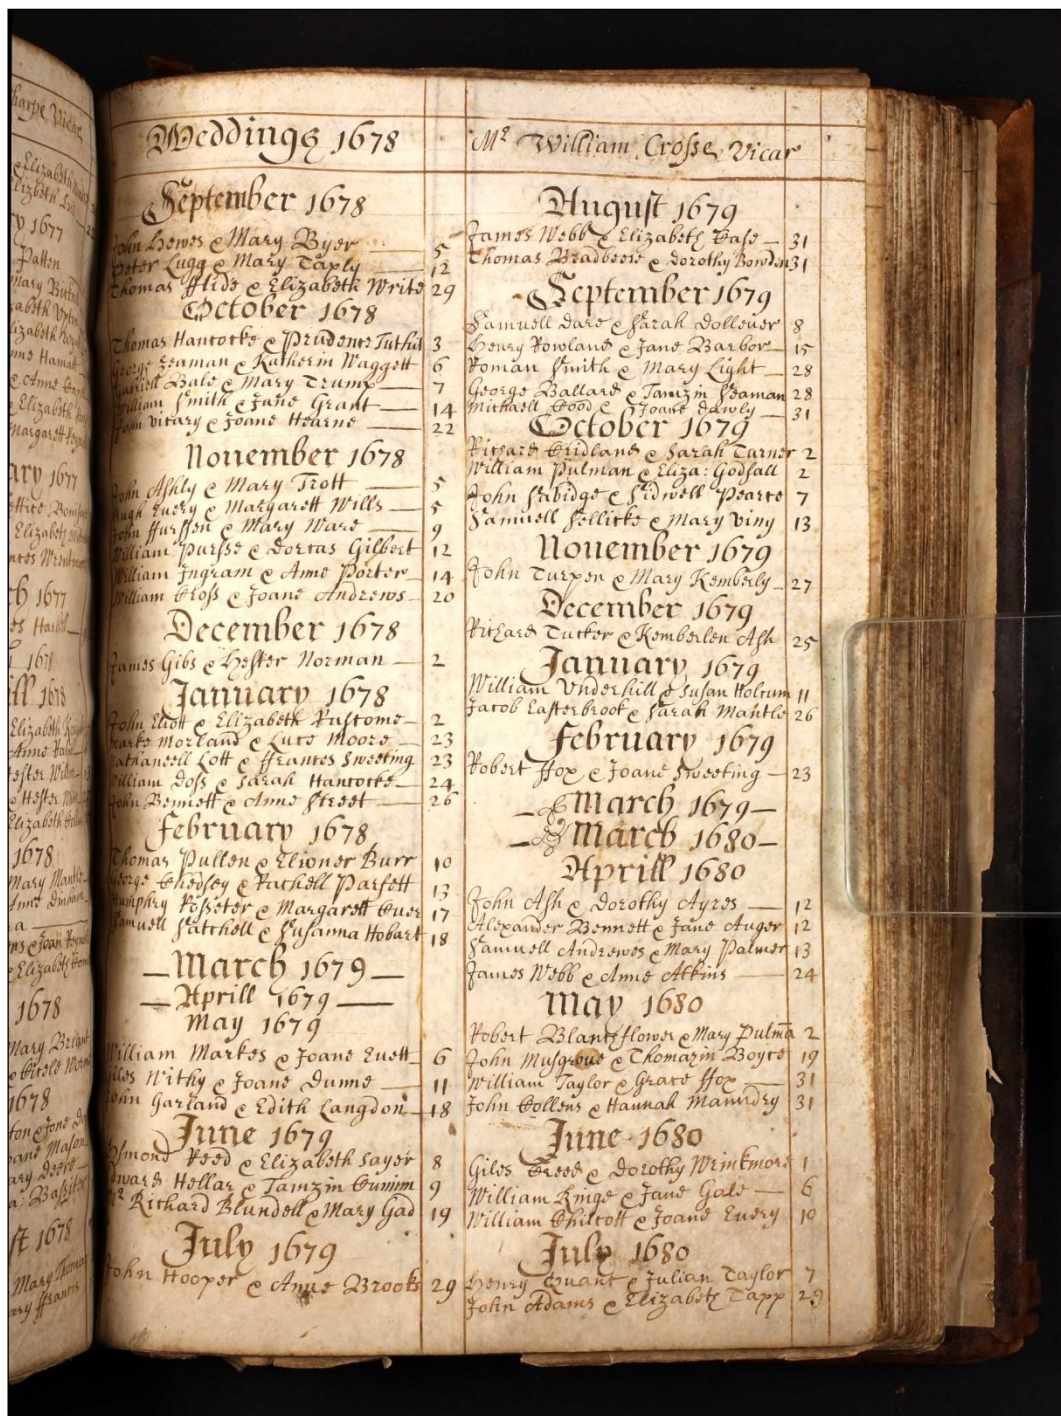 Weddings 1678
September 1678
John Hewes & Mary Byer 5
Peter Lugg & Mary Taply 12
Thomas ffide & Elizabeth Write 29
October 1678
Thomas Hancocke & Prudence Tuthil 3
George Seaman & Katherin Waggett 6
Bale & Mary Trump 7
William Smith & Jane Grant 14
Vicary & Joane Hearne 22
November 1678
John Ashly & Mary Trott 5
Hugh Euery & Margarett Wills 5
John ffursen & Mary Ware 9
William Pursse & Dorcas Gilbert 12
William Jngram & Anne Porter 14
William Cross & Joane Andrews 20
December 1678
James Gibs & Hester Norman 2
January 1678
John Eliott & Elizabeth 2
Marke Morland & Luce Moore 23
Nathaneell Lott & ffrances Sweeting 23
William Doss & Sarah Hancocke 24
John Bennett & Anne Street 26
February 1678
Thomas Pullen & Elioner Burr 10
George Chedsey & Rachell Parfett 13
Humphry Rosseter & Margarett Euer 17
Samuell Satchell & Susanna Hobart 18
March 1679
Aprill 1679
May 1679
William Markes & Joane Euett 6
Giles Withy & Joane Dunne 11
John Garland & Edith Langdon 18
June 1679
Osmond Reed & Elizabeth Sayer 8
Edward Hellar & Tamzin Cunim 9
Mr Richard Blundell & Mary Gad 19
July 1679
John Hooper & Anne Brooks 29
Mr William Crosse Vicar
August 1679
James Webb & Elizabeth Case 31
Thomas Bradbeere & Dorothy Bowden 31
September 1679
Samuell Dare & Sarah Dolleuer 8
Henry Rowland & Jane Barbor 15
Roman Smith & Mary Light 28
George Ballard & Tamzin Seaman 28
Michaell Good & Joane Dawly 31
October 1679
Richard Cridland & Sarah Turner 2
William Pulman & Eliza: Godfall 2
John Sabidge & Sidwell Pearce 7
Samuell Sellicke & Mary Viny 13
November 1679
John Turpen & Mary Kemberly 27
December 1679
Richard Tucker & Kemberlen Ash 25
January 1679
William Vnderhill & Susan Holcum 11
Jacob Easterbrook & Sarah Mantle 26
February 1679
Robert ffox & Joane Sweeting 23
March 1679
March 1680
Aprill 1680
John Ash & Dorothy Ayres 12
Alexander Bennett & Jane Auger 12
Samuell Andrewes & Mary Palmer 13
James Webb & Anne Atkins 24
May 1680
Robert Blanchflower & Mary Pulmā 2
John Musgroue & Thomazin Boyce 19
William Taylor & Grace ffox 31
John Collens & Hannah Manndry 31
June 1680
Giles Creed & Dorothy Wrinkmore 1
William Ringe & Jane Gale 6
William Chilcott & Joane Euery 10
July 1680
Henry Quant & Julian Taylor 7
John Adams & Elizabeth Tapp 29